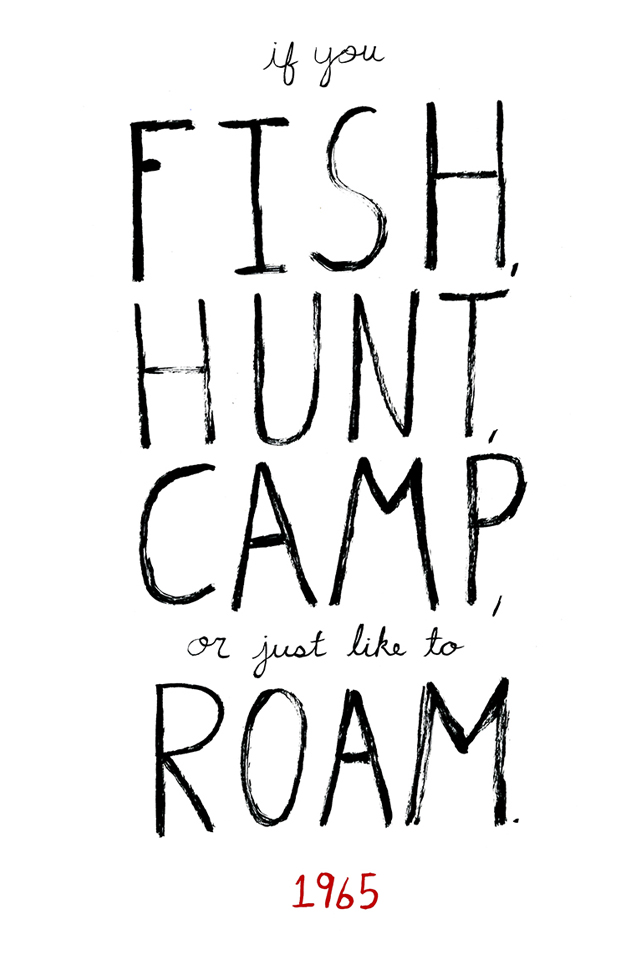 if you
FISH,
HUNT,
CAMP,
or just like to
ROAM.
1965